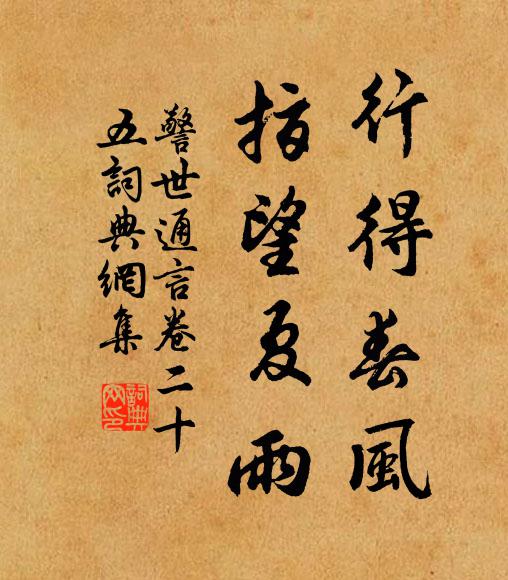 行得春風
指望夏雨
警世通言卷二十
五詞典網集
詞典
网印